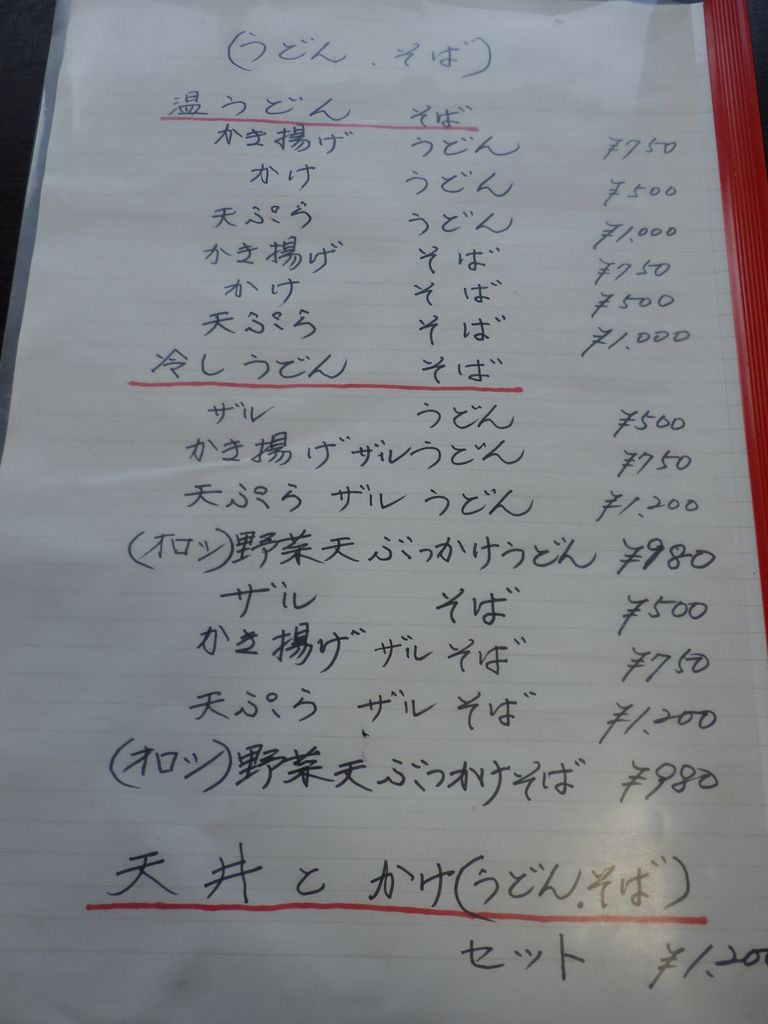 (うどん.そば)
温うどん そば
かき揚げ うどん ¥750
かけ うどん ¥500
天ぷら うどん ¥1.000
かき揚げ そば ¥750
かけ そば ¥500
天ぷら そば ¥1.000
冷しうどん そば
ザル うどん ¥500
かき揚げザルうどん ¥750
天ぷら ザル うどん ¥1.200
(オロシ)野菜天ぶっかけうどん ¥980
ザル そば ¥500
かき揚げ ザル そば ¥750
天ぷら ザル そば ¥1.200
(オロシ)野菜天ぶっかけそば ¥980
天丼と かけ(うどん.そば)
セット ¥1.200